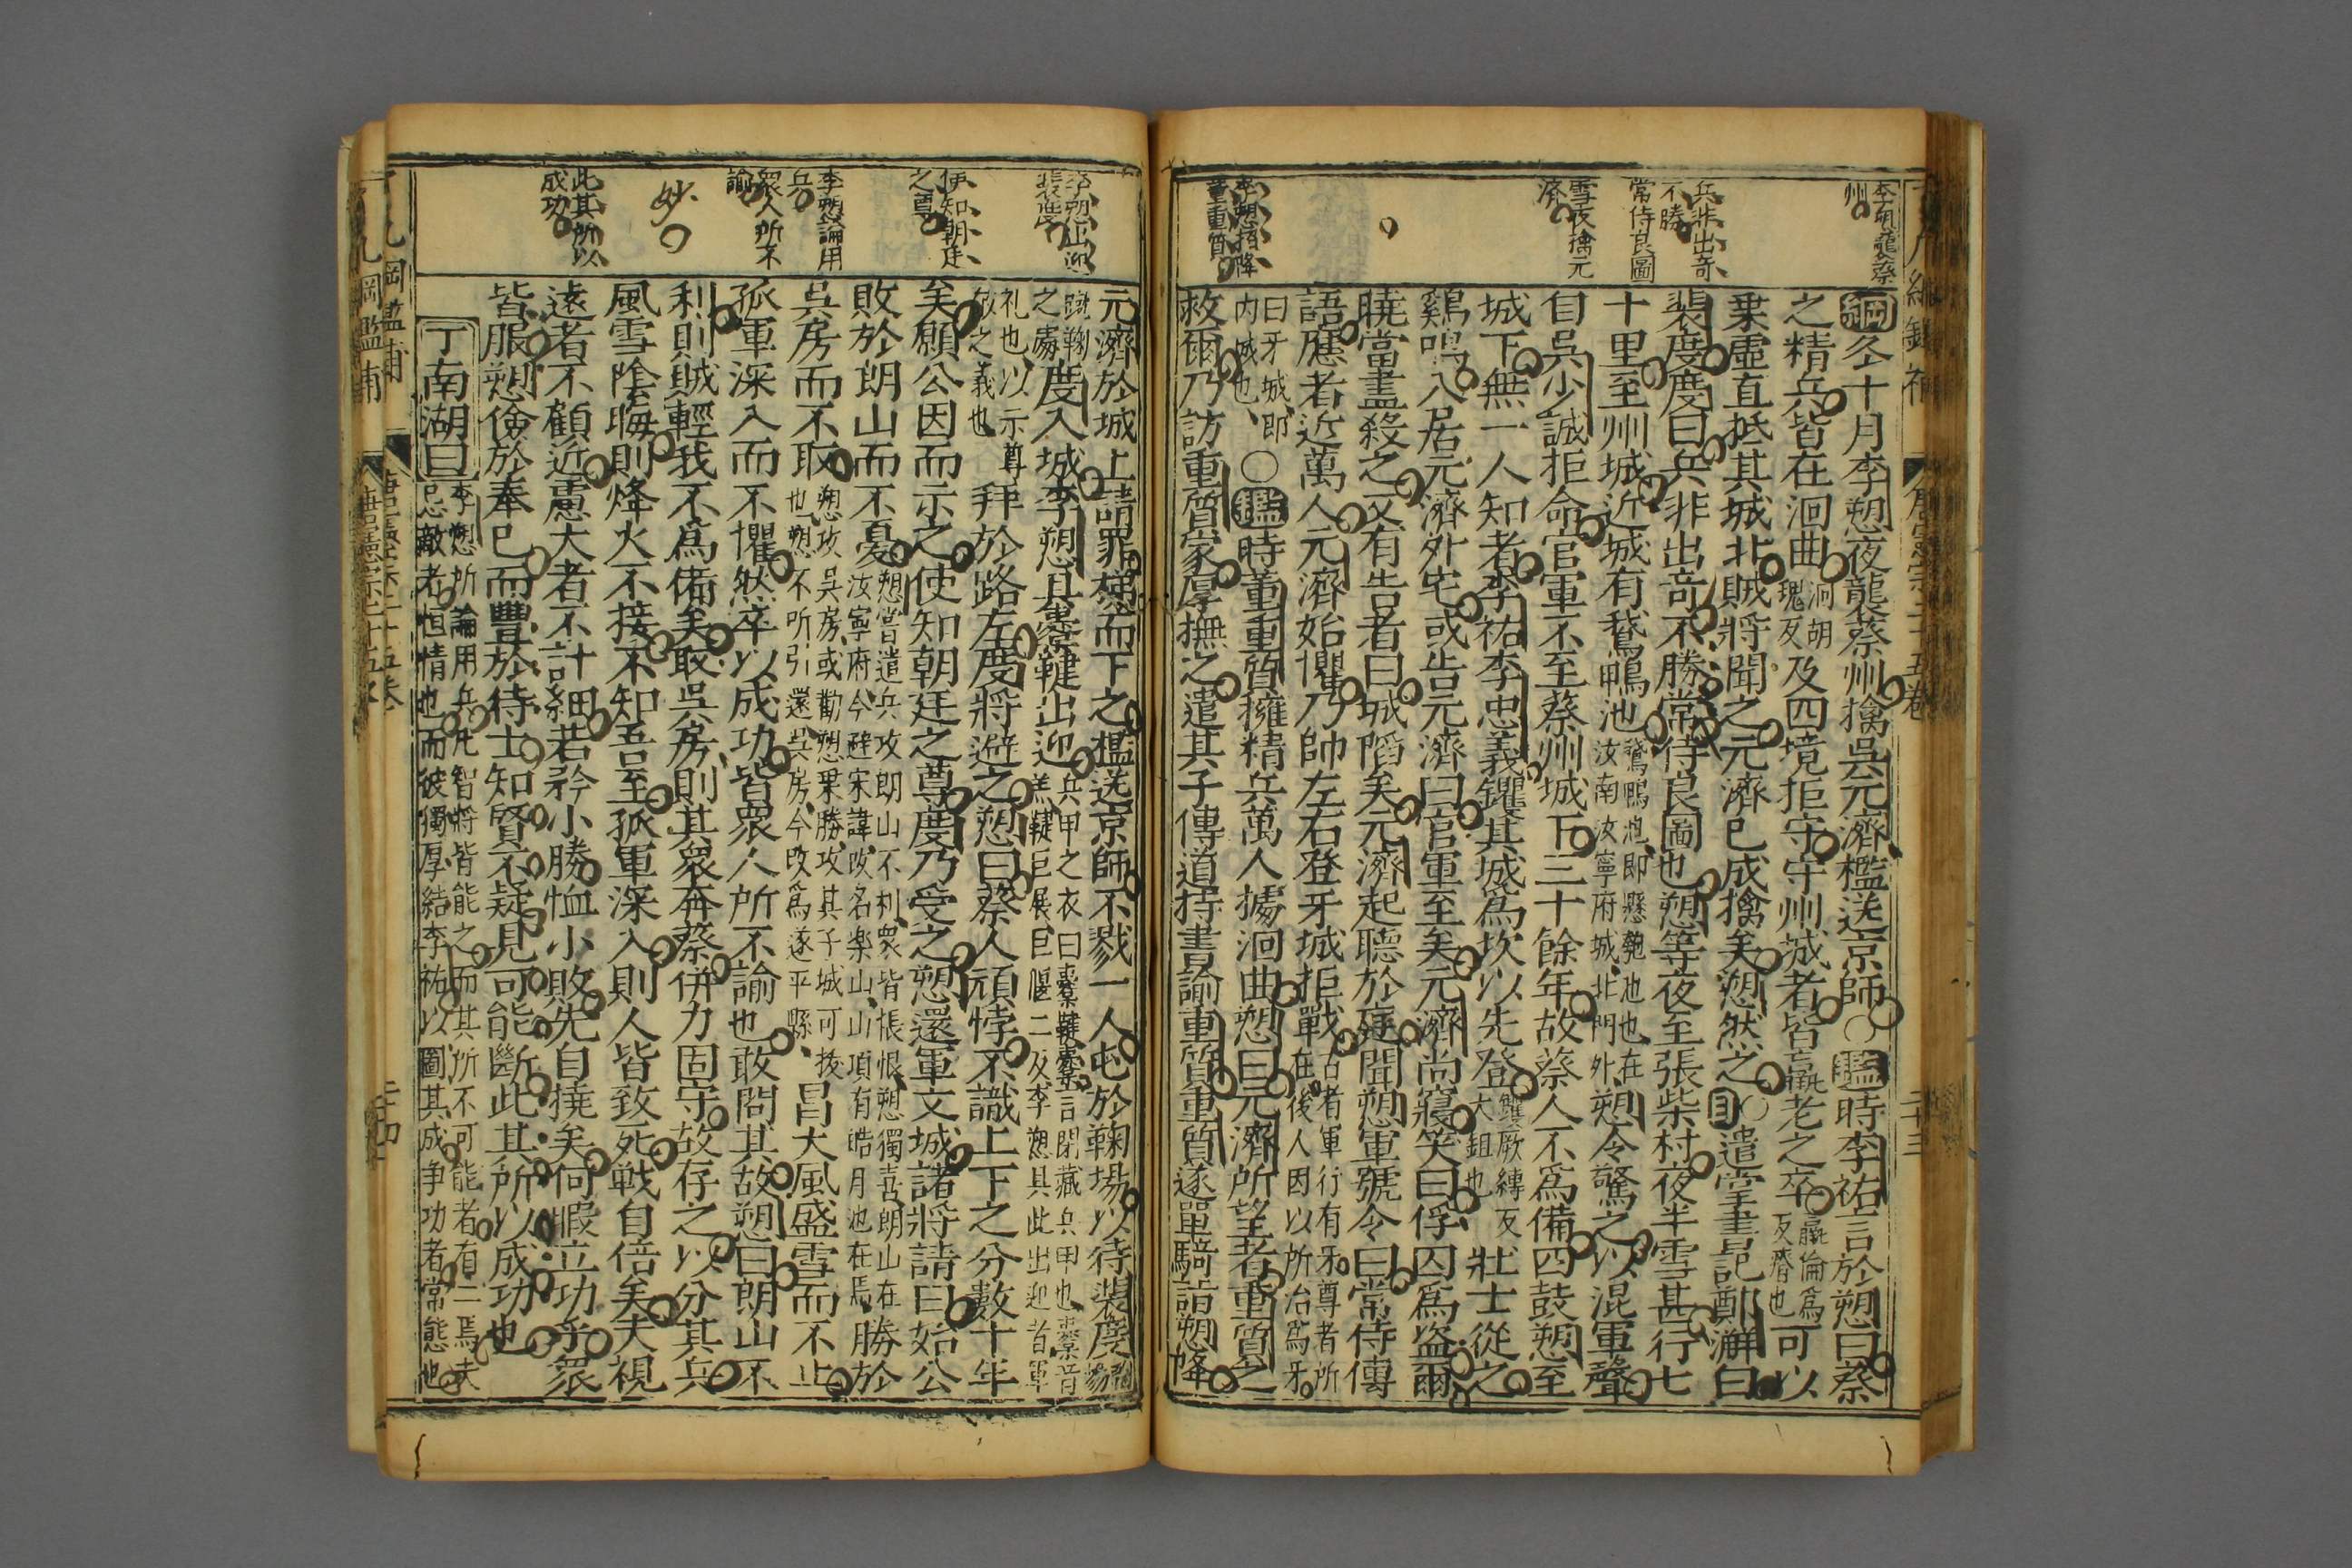 李愬襲蔡
州
兵非出奇
不勝
常侍良圖
雪夜擒元
濟
李愬招降
董重質
綱冬十月李愬夜襲蔡州擒吳元濟檻送京師○鑑時李祐言於愬曰蔡
之精兵皆在洄曲洄胡瑰反及四境拒守守州城者皆羸老之卒羸倫爲反瘠也可以
乗虛直抵其城北賊將聞之元濟已成擒矣愬然之○目遣掌書記鄭澥白
裴度度曰兵非出奇不勝常侍良圖也愬等夜至張柴村夜半雪甚行七
十里至州城近城有鵞鴨池鵞鴨池即懸瓠池也在汝南汝寧府城北門外愬令驚之以混軍聲
自吳少誠拒命官軍不至蔡州城下三十餘年故蔡人不爲備四鼓愬至
城下無一人知者李祐李忠義钁其城爲坎以先登钁厥縳反大鉏也壯士從之
鷄鳴入居元濟外宅或告元濟曰官軍至矣元濟尚寢笑曰俘囚爲盜爾
曉當盡殺之又有告者曰城陷矣元濟起聽於庭聞愬軍號令曰常侍傳
語應者近萬人元濟始懼乃帥左右登牙城拒戰古者軍行有牙尊者所在後人因以所治爲牙
曰牙城即內城也○鑑時董重質擁精兵萬人據洄曲愬曰元濟所望者重質之
救爾乃訪重質家厚撫之遣其子傳道持書諭重質重質遂單騎詣愬降
李愬出迎
裴度
使知朝廷
之尊
李愬論用
兵
衆人所不
諭
妙
此其所以
成功
元濟於城上請罪梯而下之檻送京師不戮一人屯於鞠場以待裴度
蹴鞠之處度入城李愬具櫜鞬出迎兵甲之衣曰櫜鞬櫜言閉藏兵甲也櫜音羔鞬巨展巨偃二反李愬具此出迎者軍
礼也以示尊敬之義也拜於路左度將避之愬曰蔡人頑悖不識上下之分數十年
矣願公因而示之使知朝廷之尊度乃受之愬還軍文城諸將請曰始公
敗於朗山而不憂愬嘗遣兵攻朗山不利衆皆悵恨愬獨喜朗山在汝寧府今避宋諱改名樂山山項有皓月池在焉勝於
吳房而不取愬攻吳房或勸愬乗勝攻其子城可拔也愬不听引還吳房今改爲遂平縣冒大風盛雪而不止
孤軍深入而不懼然卒以成功皆衆人所不諭也敢問其故愬曰朗山不
利則賊輕我不爲備矣取吳房則其衆奔蔡併力固守故存之以分其兵
風雪陰晦則烽火不接不知吾至孤軍深入則人皆致死戰自倍矣夫視
遠者不顧近慮大者不計細若矜小勝恤小敗先自撓矣何暇立功乎衆
皆服愬儉於奉己而豐於待士知賢不疑見可能斷此其所以成功也
丁南湖曰李愬所論用兵凡智將皆能之而其所不可能者有二焉夫
忌敵者恒情也而彼獨厚結李祐以圖其成争功者常態也